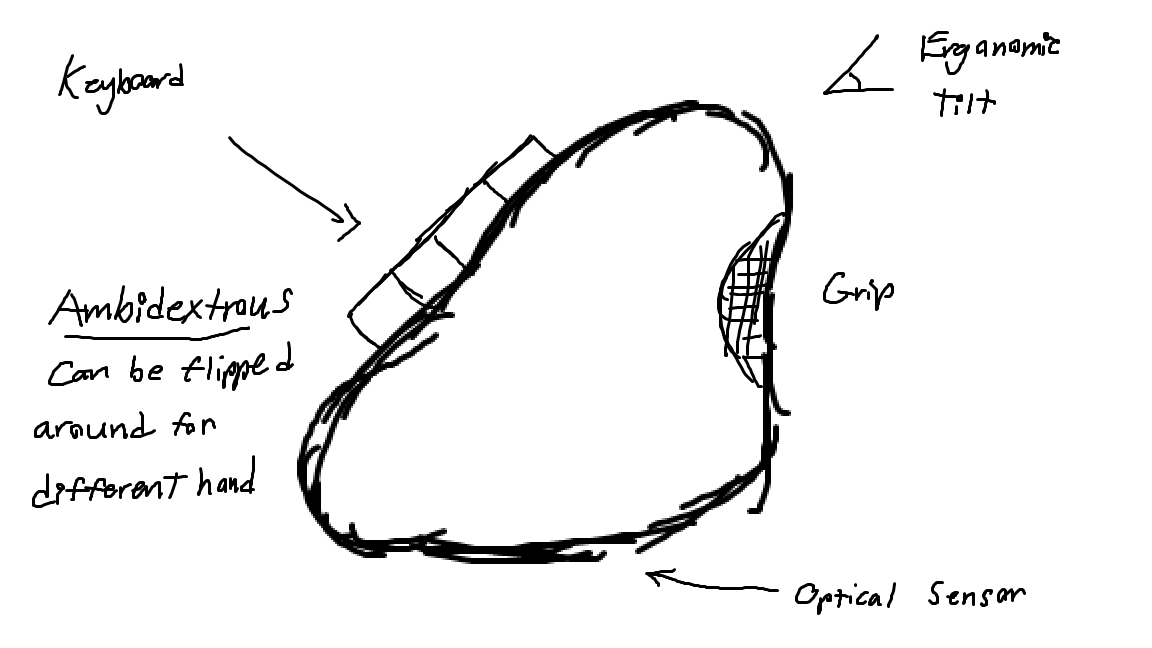 Keyboard
Erganomic
tilt
Ambidextrous
Can be flipped
around for
different hand
Grip
Optical Sensor